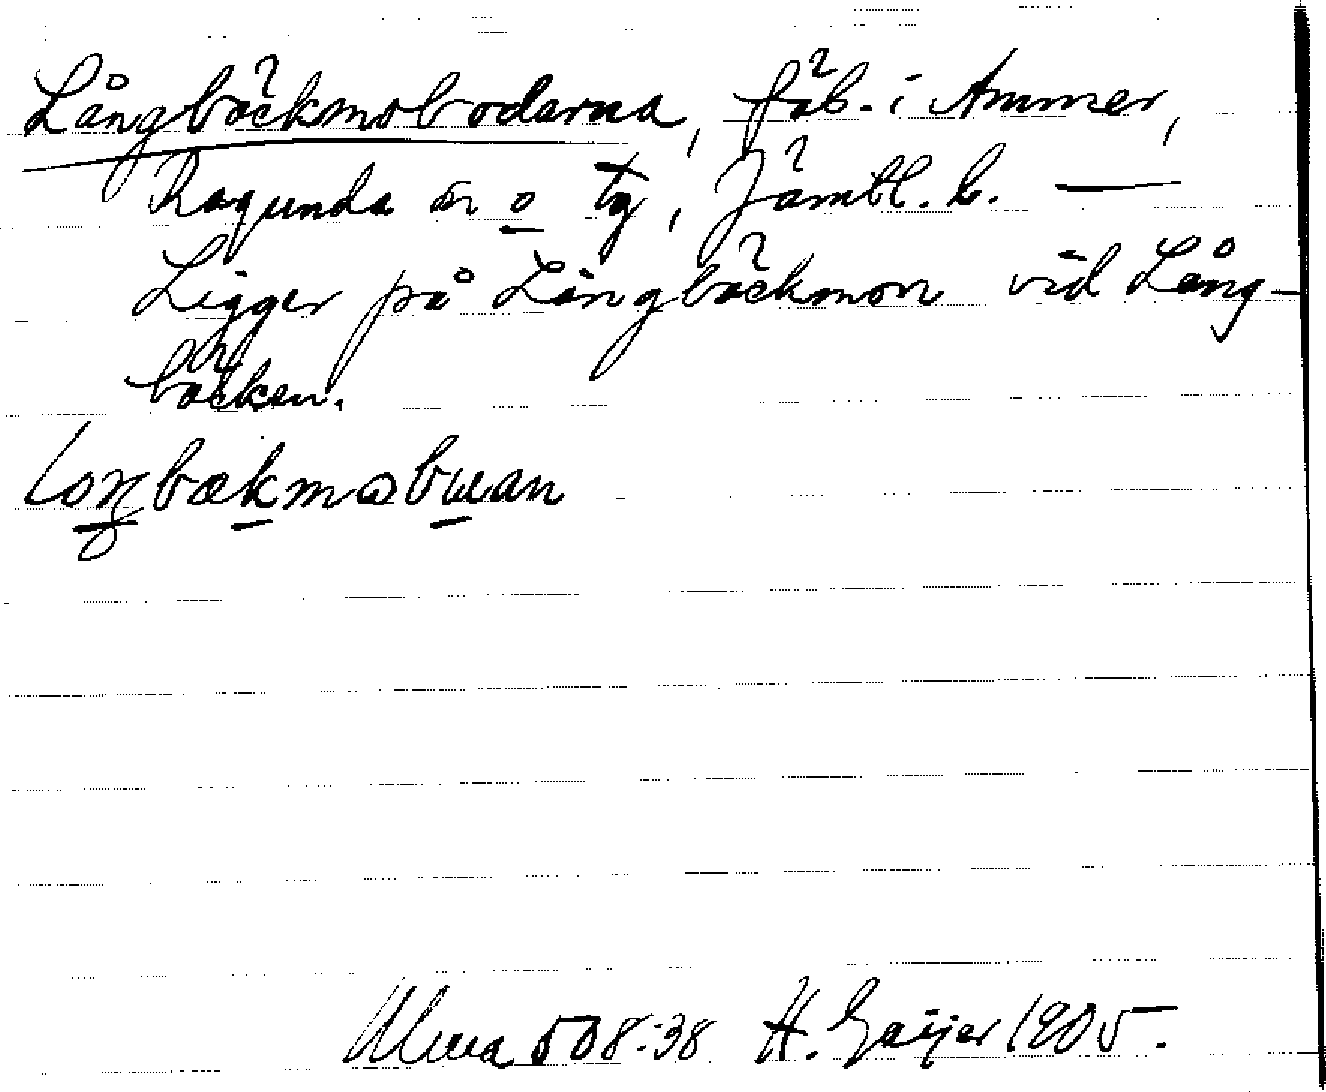 Långbäckmobodarna, fäb. i Ammer,
Ragunda sn o tg, Jämtl. l. —
Ligger på Långbäckmon vid Lång-
bäcken.
loŋbækmobuan
Ulma 508:38 H. Geijer 1905.